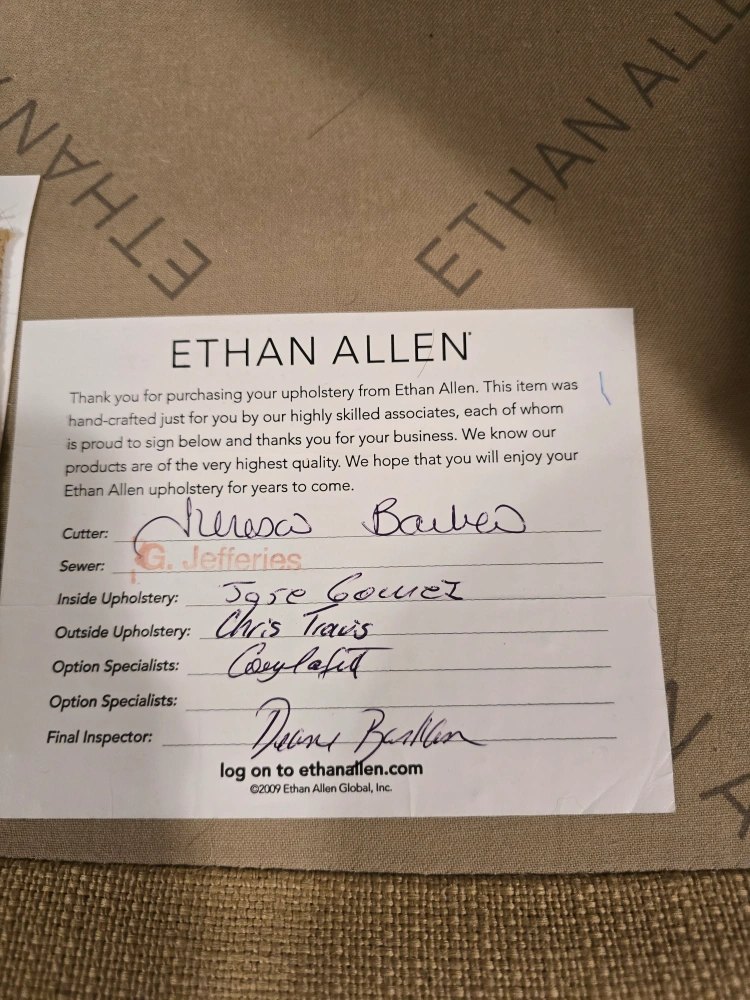 ETHAN ALLE
ETHAN
ETHAN ALLEN
Thank you for purchasing your upholstery from Ethan Allen. This item was
hand-crafted just for you by our highly skilled associates, each of whom
is proud to sign below and thanks you for your business. We know our
products are of the very highest quality. We hope that you will enjoy your
Ethan Allen upholstery for years to come.
Cutter:
Sewer: G. Jefferies
Inside Upholstery: Jose Gomez
Outside Upholstery: Chris Travis
Option Specialists:
Option Specialists:
Final Inspector:
log on to ethanallen.com
©2009 Ethan Allen Global, Inc.